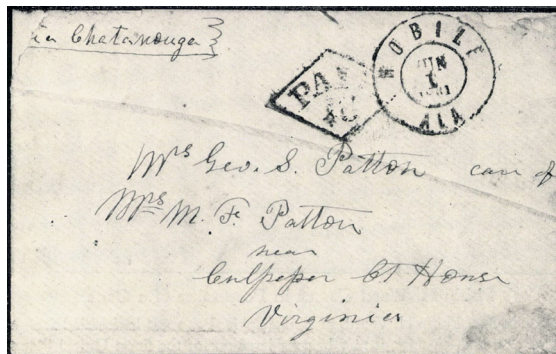 via Chatanouga
PAID
MOBILE
JUN
1
1861
ALA
Mrs Geo. S. Patton care of
Mrs M. F. Patton
near
Culpeper Ct House
Virginia